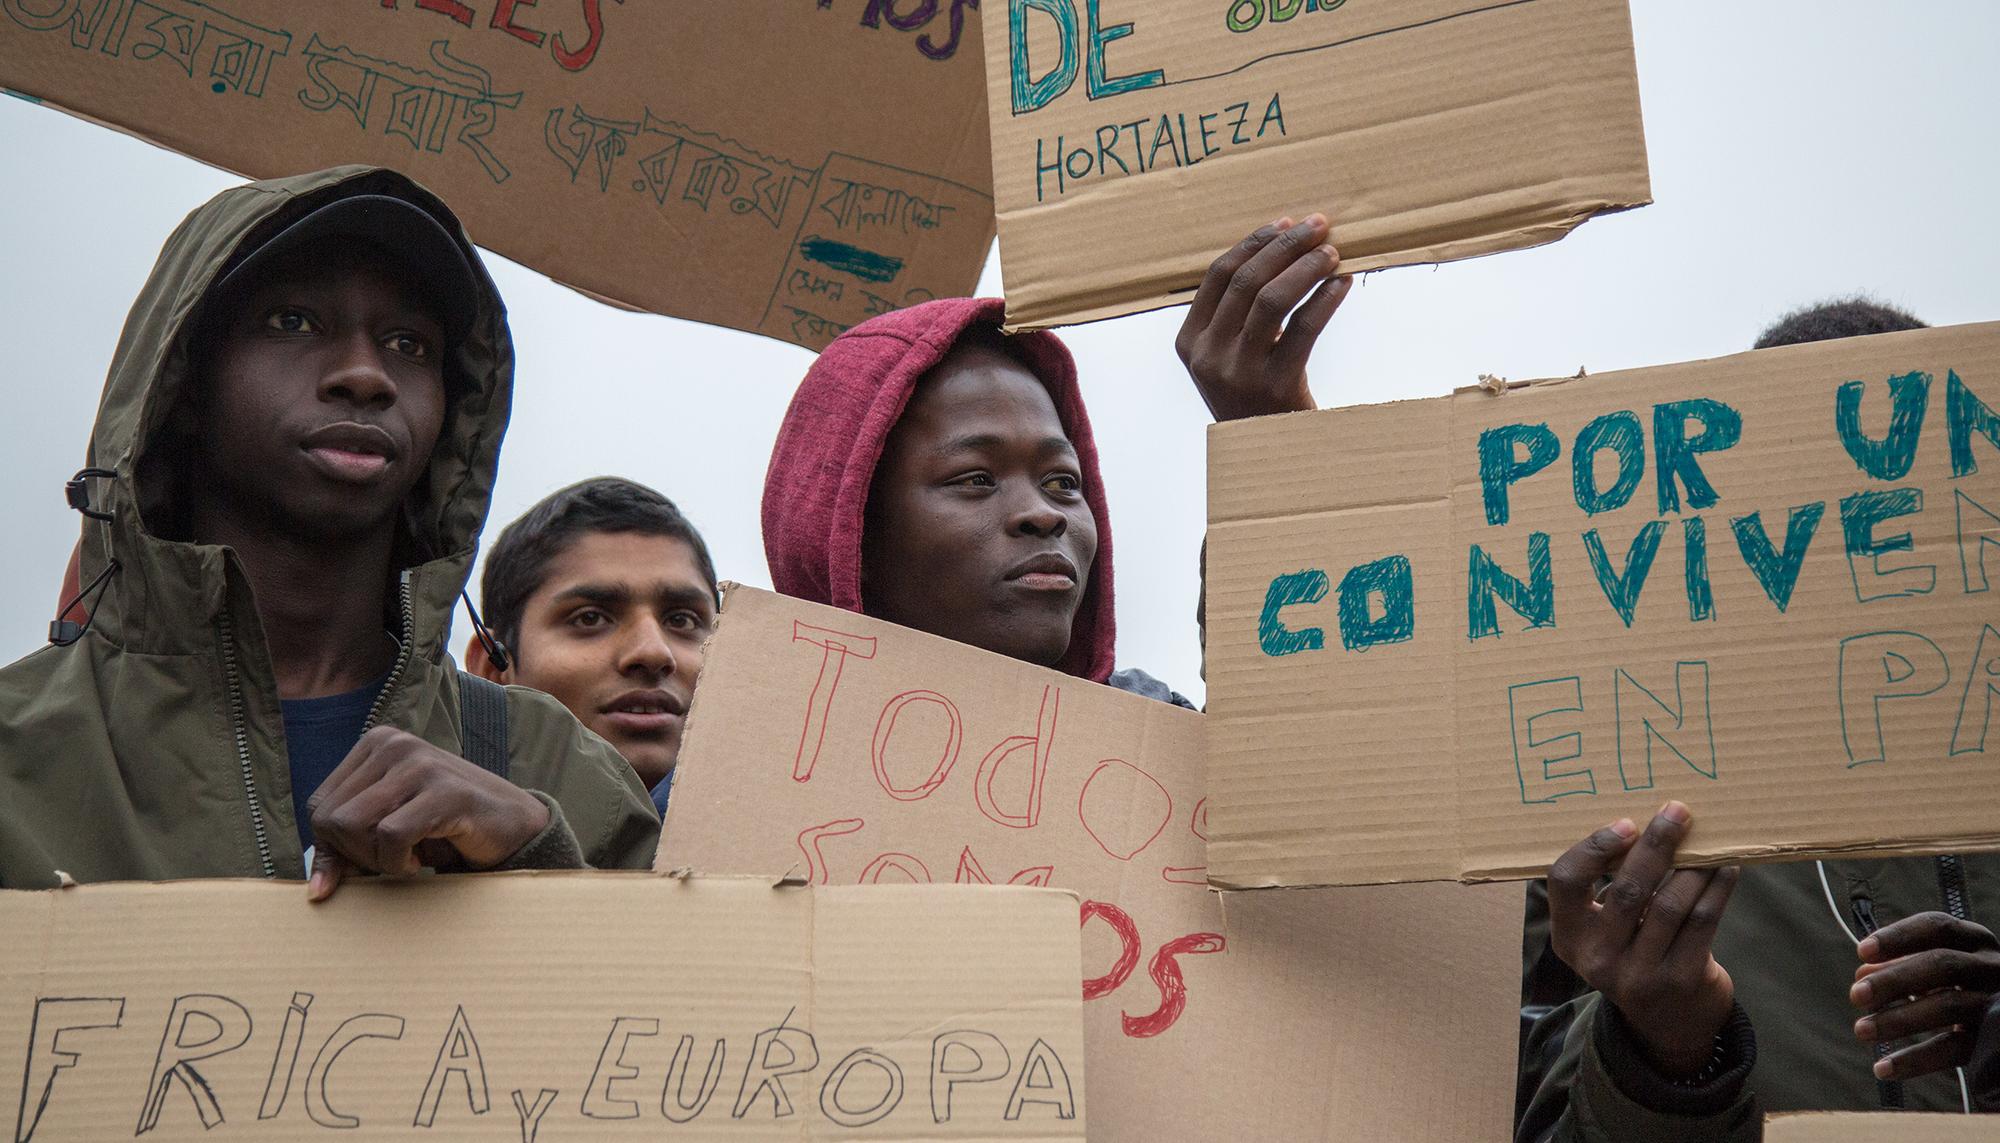 LES MOS
আমরা সবাই একরকম
বাংলাদেশ
DE ODIO
HORTALEZA
POR UN
CONVIVEN
EN PA
Todos
SOM
OS
FRICA Y EUROPA